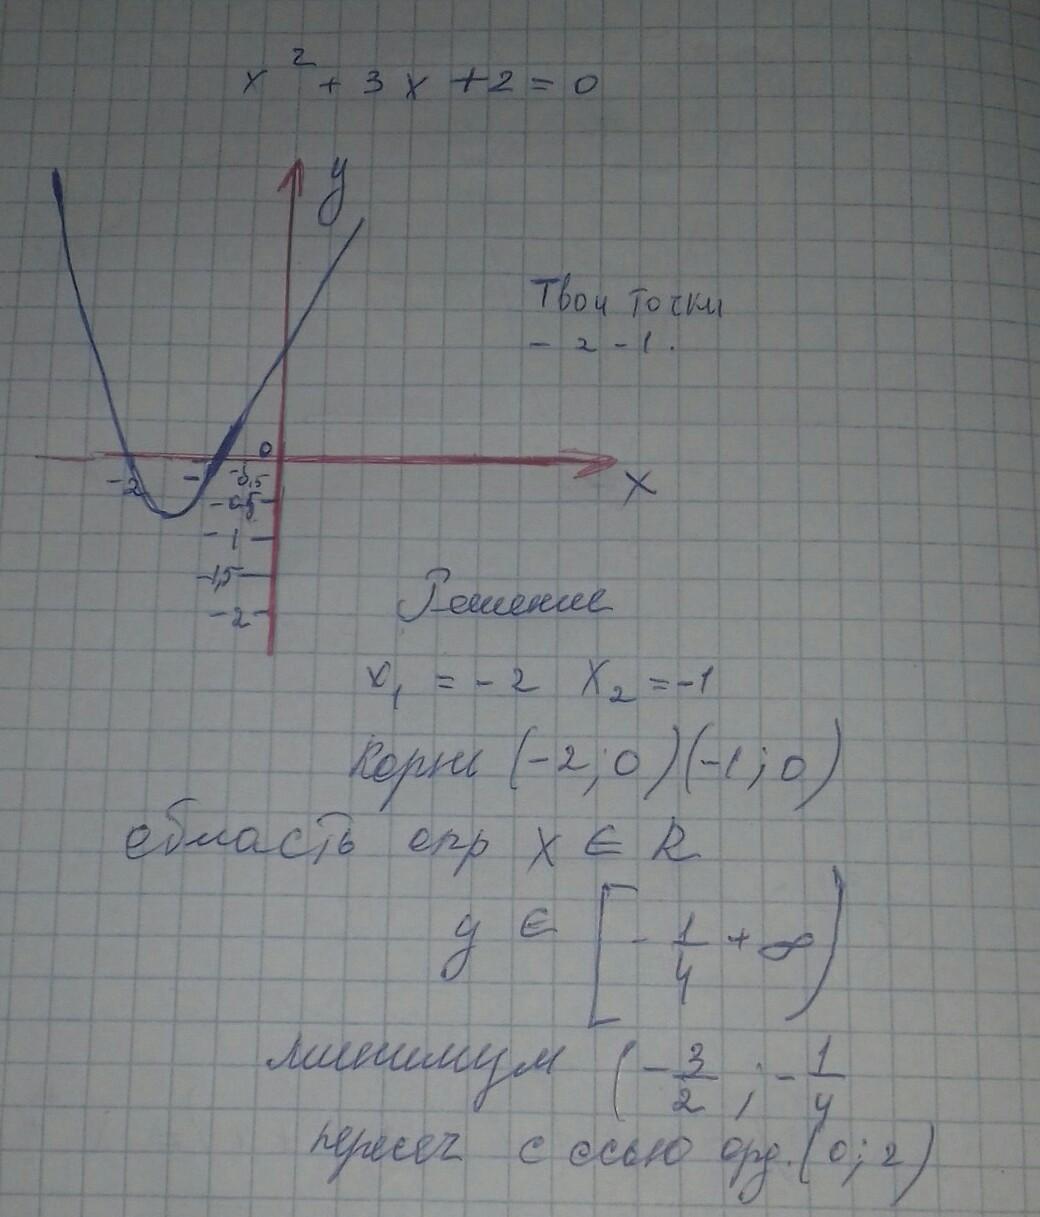 x² + 3x + 2 = 0
y
Твои точки
- 2 - 1.
0
-2 - -0,5
x
-0,5
-1
-1,5
-2
Решение
x₁ = -2 x₂ = -1
Корни (-2; 0)(-1; 0)
область опр x ∈ R
y ∈ [-1/4 + ∞)
минимум (-3/2; -1/4
пересеч с осью орд. (0; 2)